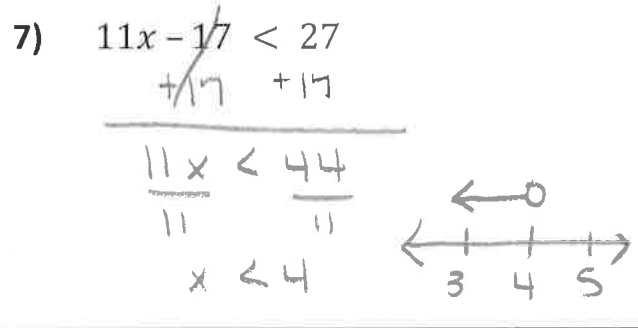 7) 11x – 17 < 27
+17 +17
11x < 44
11 11
x < 4
3 4 5